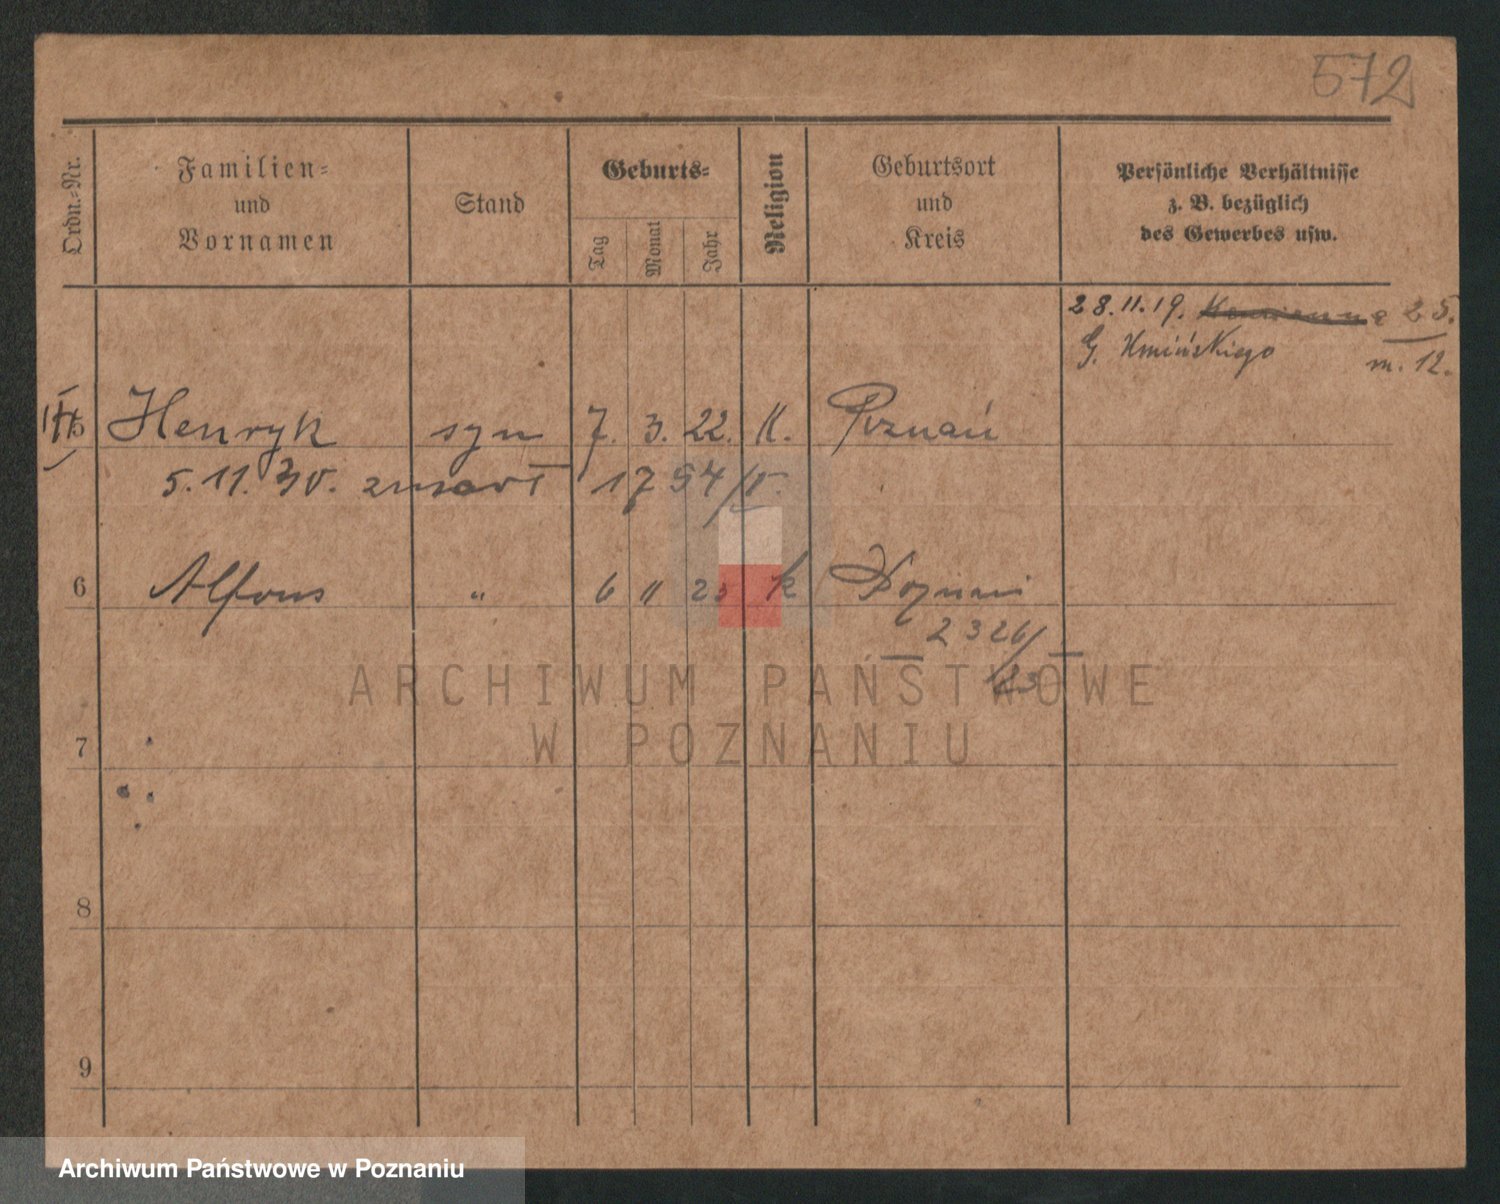 572
Ordn.-Nr.
Familien-
und
Vornamen
Stand
Geburts-
Tag
Monat
Jahr
Religion
Geburtsort
und
Kreis
Persönliche Verhältnisse
z. B. bezüglich
des Gewerbes usw.
28.11.19. 25.
G. Umińskiego m. 12.
5 Henryk syn 7. 3. 22. K. Poznań
5.11.30. zmarł 1754/V.
6 Alfons " 6 11 23 k Poznań
2326/
23
ARCHIWUM PAŃSTWOWE
W POZNANIU
7
8
9
Archiwum Państwowe w Poznaniu